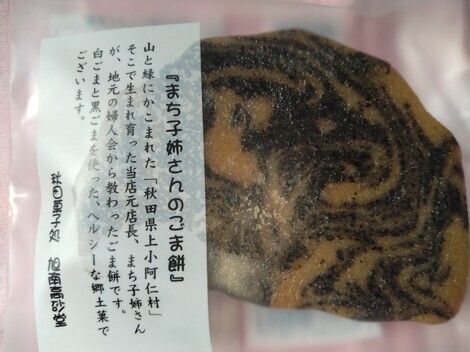 『まち子姉さんのごま餅』
山と緑にかこまれた「秋田県上小阿仁村」
そこで生まれ育った当店元店長、まち子姉さん
が、地元の婦人会から教わったごま餅です。
白ごまと黒ごまを使った、ヘルシーな郷土菓で
ございます。
秋田菓子処 旭南高砂堂